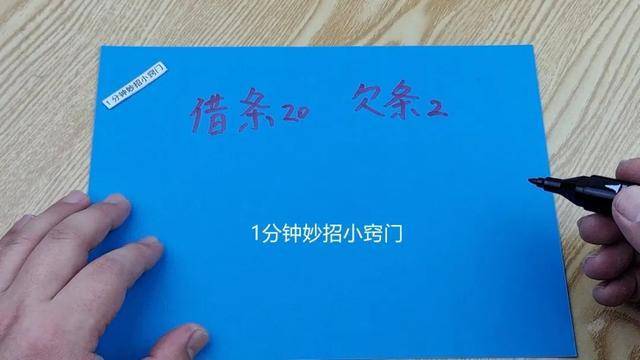 1分钟妙招小窍门
借条20 欠条2
1分钟妙招小窍门